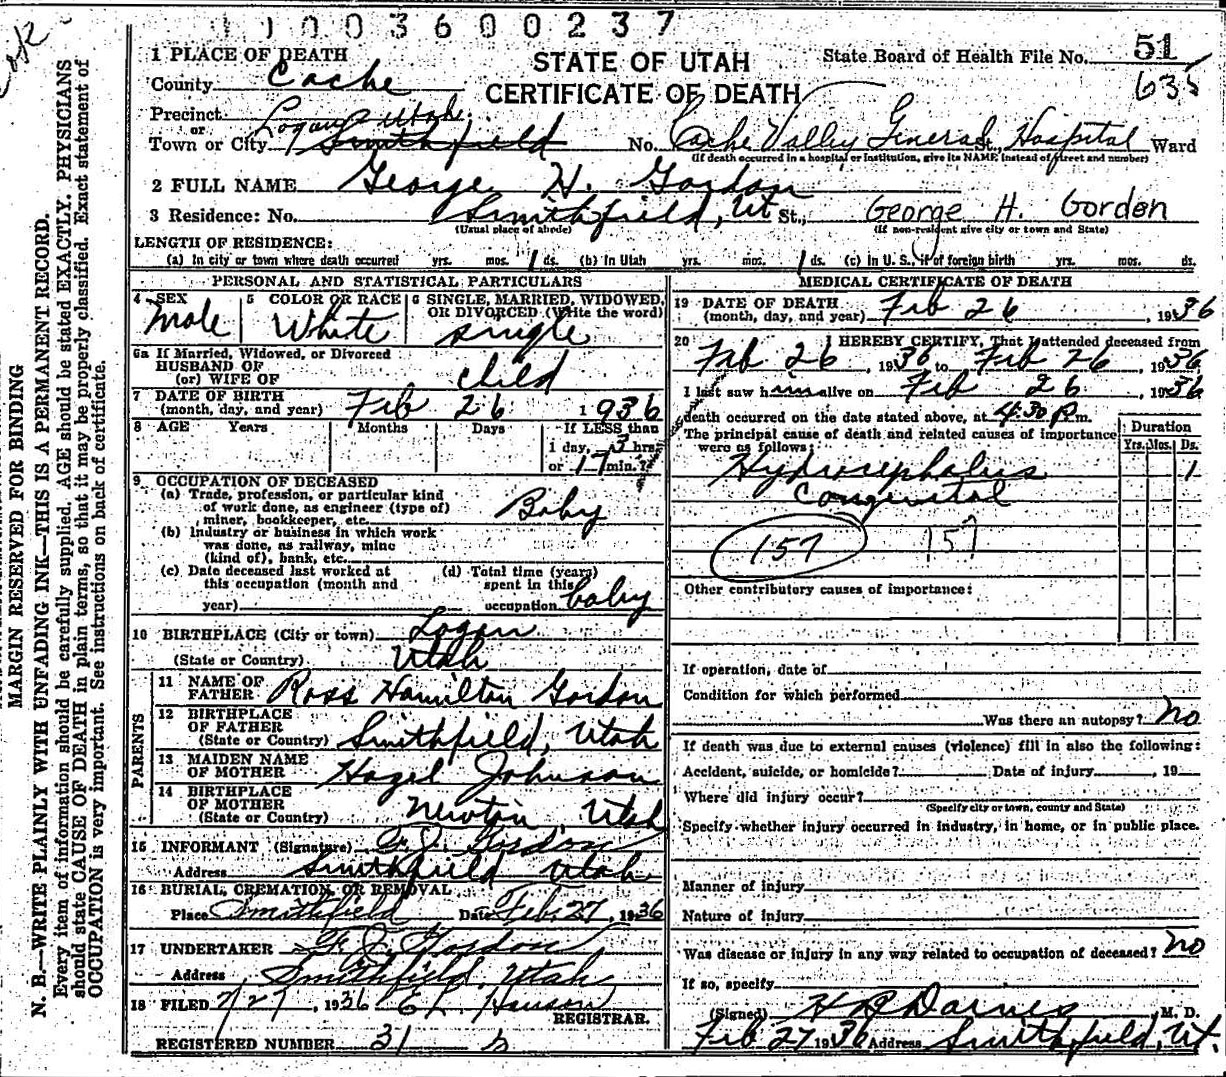 1 1 0 0 3 6 0 0 2 3 7
1 PLACE OF DEATH
County Cache
STATE OF UTAH
CERTIFICATE OF DEATH
State Board of Health File No. 51
635
Precinct Logan Utah
or
Town or City Smithfield No. Cache Valley General Hospital St., Ward
(If death occurred in a hospital or institution, give its NAME instead of street and number)
2 FULL NAME George H. Gordon
3 Residence: No. Smithfield, Ut St., George H. Gordon
(Usual place of abode) (If non-resident give city or town and State)
LENGTH OF RESIDENCE:
(a) In city or town where death occurred yrs. mos. 1 ds. (b) In Utah yrs. mos. 1 ds. (c) in U. S., if of foreign birth yrs. mos. ds.
PERSONAL AND STATISTICAL PARTICULARS
4 SEX Male
5 COLOR OR RACE White
6 SINGLE, MARRIED, WIDOWED, OR DIVORCED (Write the word) single
6a If Married, Widowed, or Divorced
HUSBAND OF
(or) WIFE OF child
7 DATE OF BIRTH
(month, day, and year) Feb 26 1936
8 AGE Years Months Days If LESS than
1 day, 3 hrs.
or 17 min.?
9 OCCUPATION OF DECEASED
(a) Trade, profession, or particular kind
of work done, as engineer (type of)
miner, bookkeeper, etc. Baby
(b) Industry or business in which work
was done, as railway, mine
(kind of), bank, etc.
(c) Date deceased last worked at
this occupation (month and
year)
(d) Total time (years)
spent in this
occupation baby
10 BIRTHPLACE (City or town) Logan
(State or Country) Utah
PARENTS
11 NAME OF
FATHER Ross Hamilton Gordon
12 BIRTHPLACE
OF FATHER
(State or Country) Smithfield, Utah
13 MAIDEN NAME
OF MOTHER Hazel Johnson
14 BIRTHPLACE
OF MOTHER
(State or Country) Newton Utah
15 INFORMANT (Signature) Gordon
Address Smithfield Utah
16 BURIAL, CREMATION, OR REMOVAL
Place Smithfield Date Feb. 27, 1936
17 UNDERTAKER Gordon
Address Smithfield, Utah
18 FILED 2/27, 1936 E L Hanson
REGISTRAR.
REGISTERED NUMBER 31
MEDICAL CERTIFICATE OF DEATH
19 DATE OF DEATH
(month, day, and year) Feb 26, 1936
20 I HEREBY CERTIFY, That I attended deceased from
Feb 26, 1936 to Feb 26, 1936
I last saw him alive on Feb 26, 1936
death occurred on the date stated above, at 4:30 P.m.
The principal cause of death and related causes of importance
were as follows:
Duration
Yrs. Mos. Ds.
Hydrocephalus 1
Congenital
157 157
Other contributory causes of importance:
If operation, date of
Condition for which performed
Was there an autopsy? no
If death was due to external causes (violence) fill in also the following:
Accident, suicide, or homicide? Date of injury, 19
Where did injury occur?
(Specify city or town, county and State)
Specify whether injury occurred in industry, in home, or in public place.
Manner of injury
Nature of injury
Was disease or injury in any way related to occupation of deceased? no
If so, specify
(Signed) M. D.
Feb 27 1936 Address Smithfield, Ut.
MARGIN RESERVED FOR BINDING
N. B.—WRITE PLAINLY WITH UNFADING INK—THIS IS A PERMANENT RECORD.
Every item of information should be carefully supplied. AGE should be stated EXACTLY. PHYSICIANS
should state CAUSE OF DEATH in plain terms, so that it may be properly classified. Exact statement of
OCCUPATION is very important. See instructions on back of certificate.